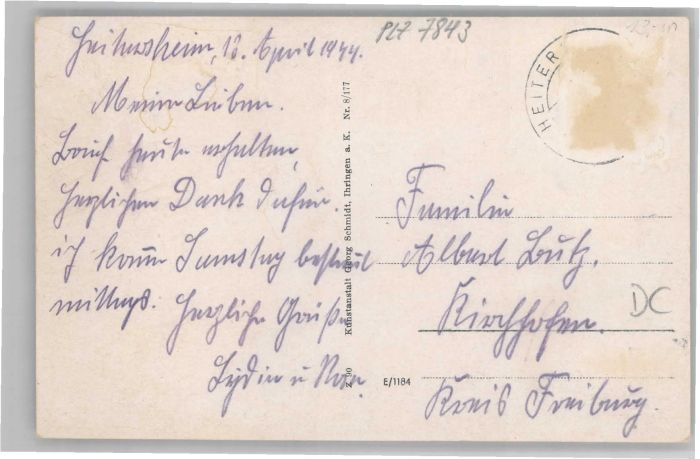 Heitersheim, 13. April 1944.
Meine Lieben.
Brief heute erhalten,
herzlichen Dank dafür.
ich komme Samstag bestimmt
mittags. Herzliche Grüße
Lydia u Rosa.
PLZ 7843
13.-
HEITER
Familie
Albert Lutz.
Kirchhofen.
Kreis Freiburg.
DC
Kunstanstalt Georg Schmidt, Ihringen a. K. Nr. 8/177
E/1184